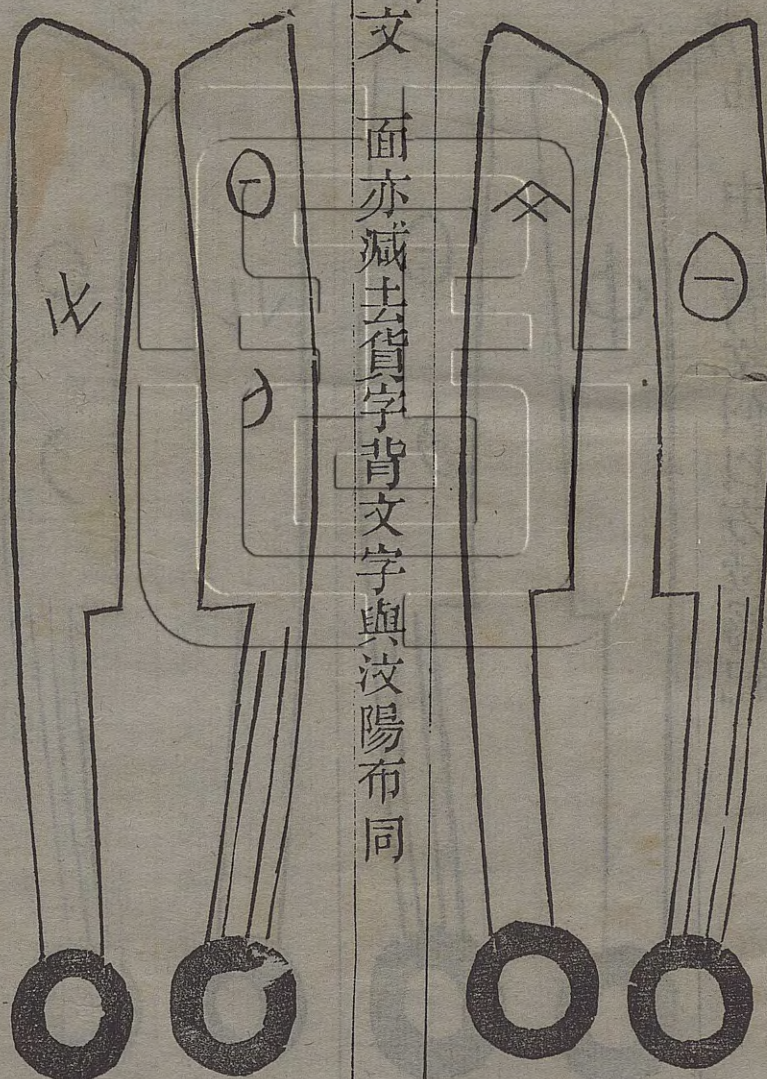 文 面亦減去貨字背文字與汶陽布同